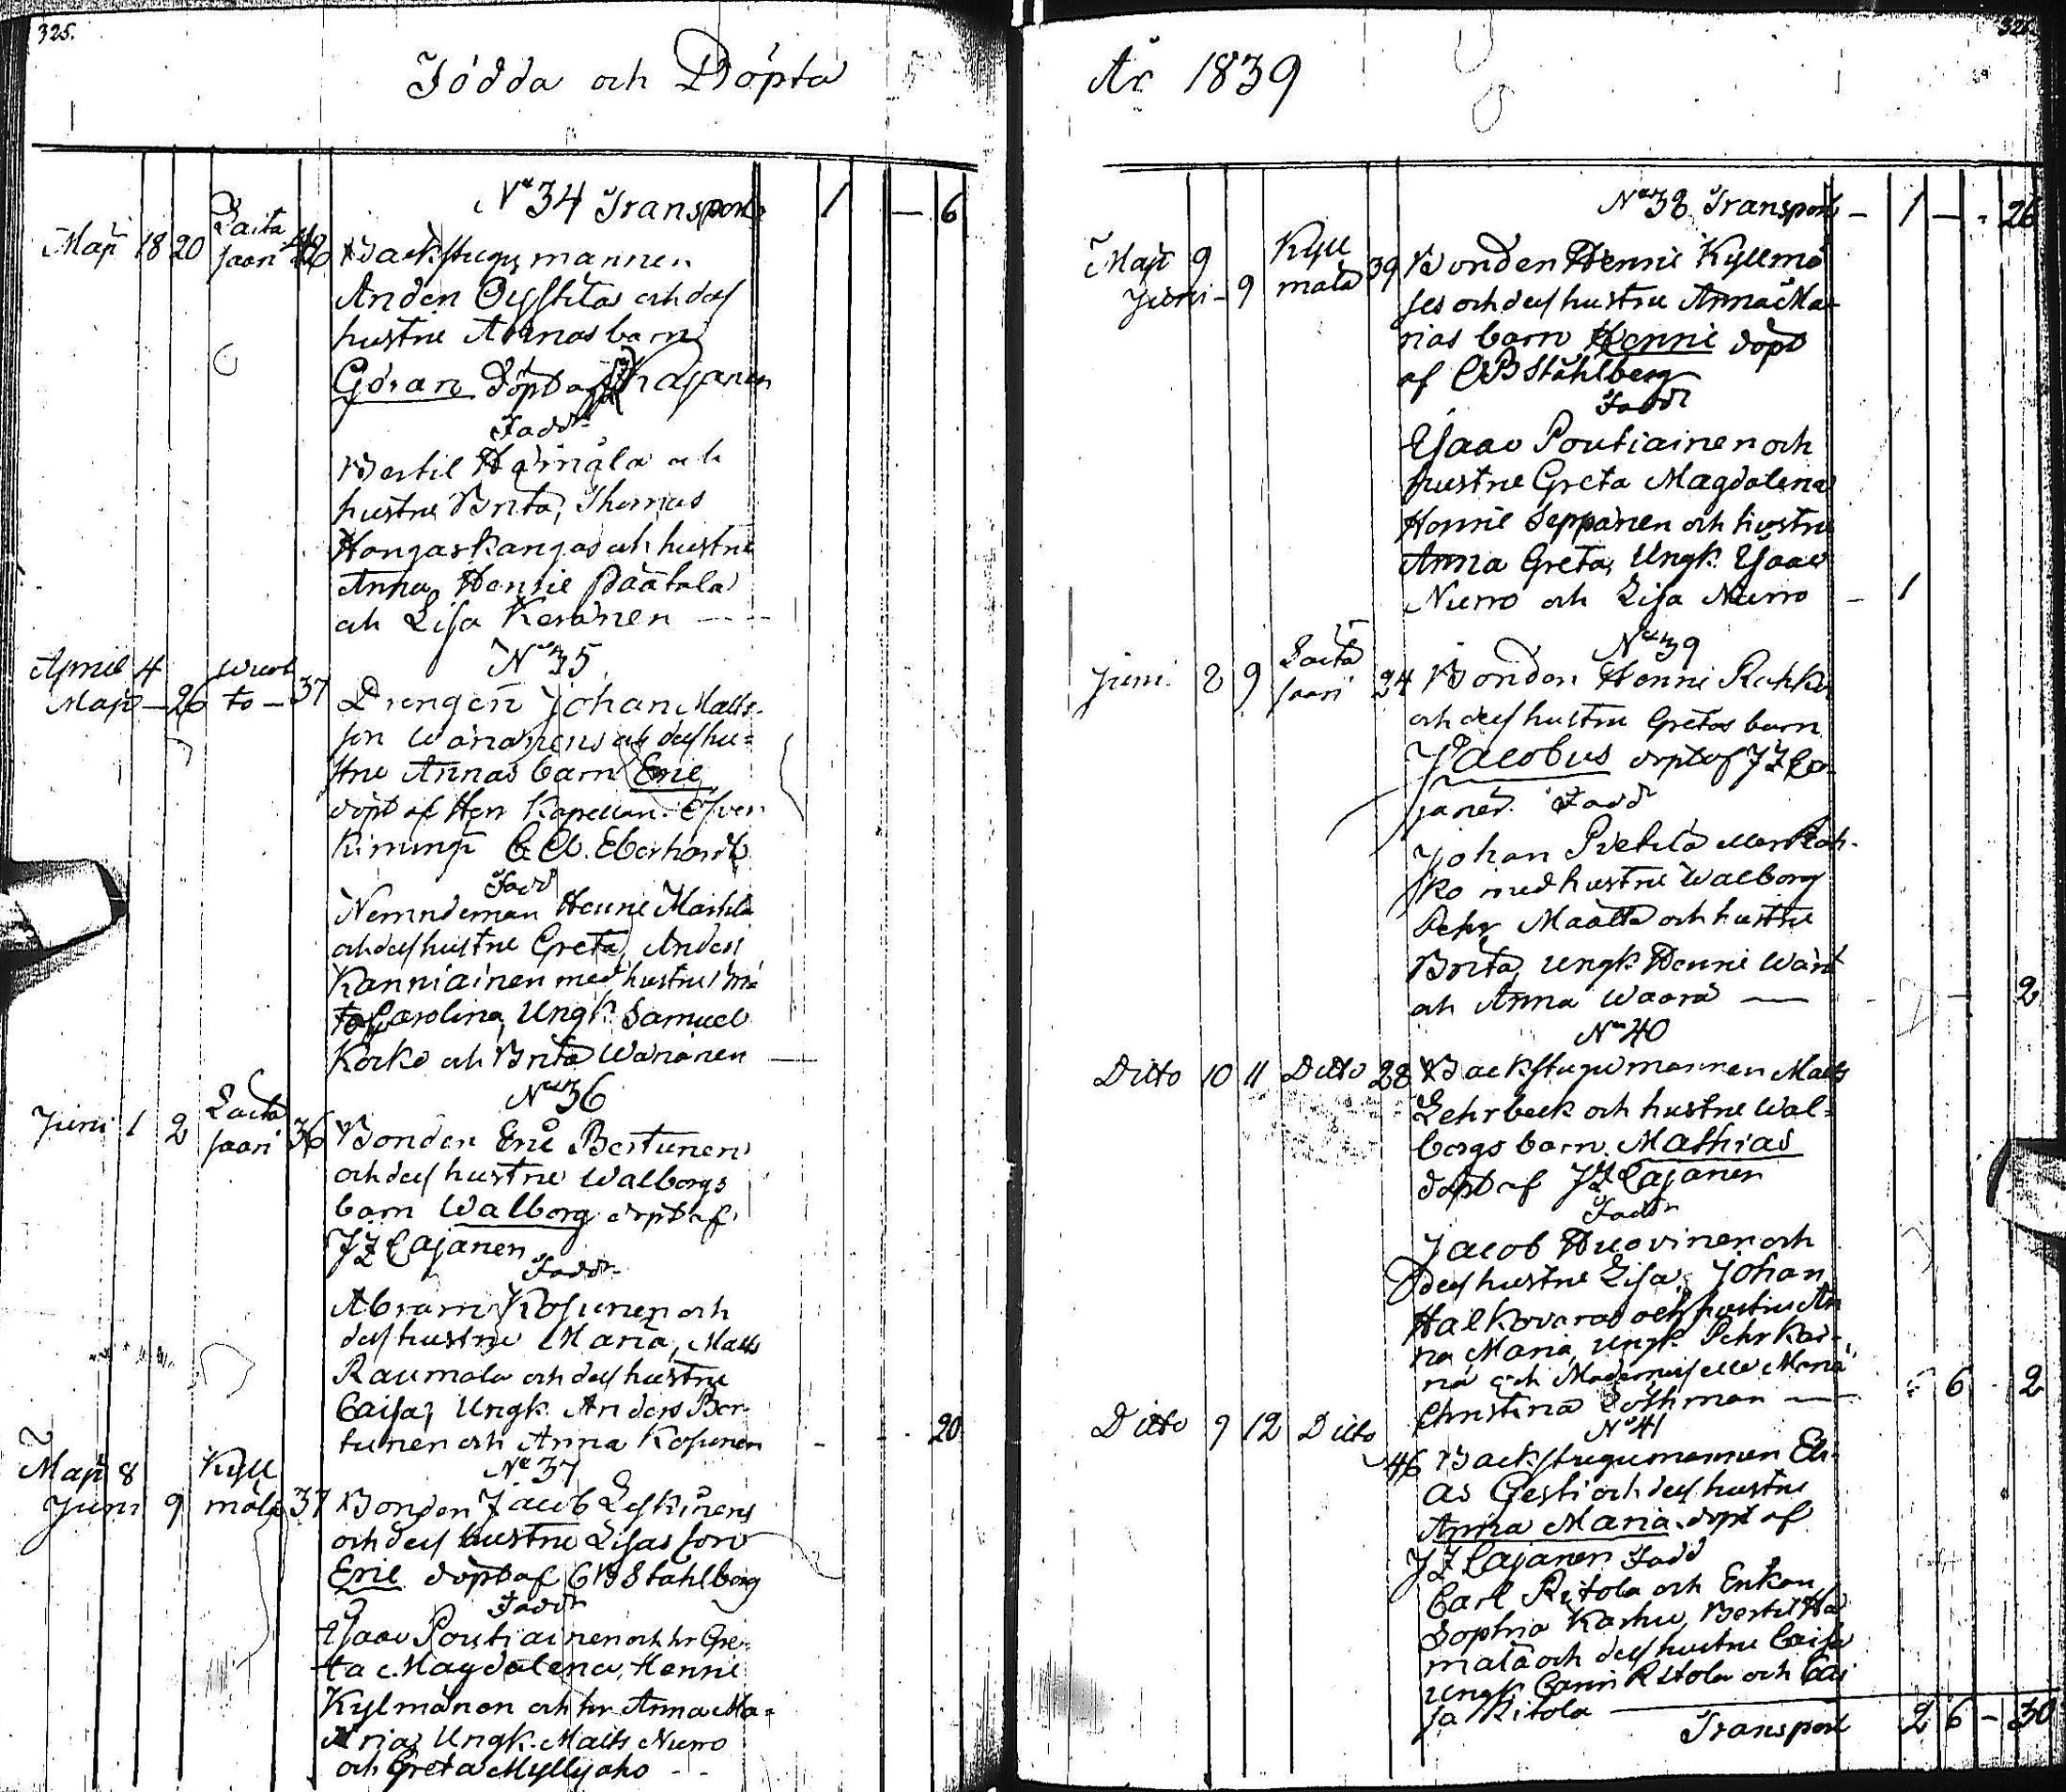 325.
Födda och Döpta
No 34 Transport 1 — 6
Maji 18 20 Laita
saari Backstugumannen
Anders och dess
hustru Annas barn
Göran Döpt af Cajanen
Fadd
Bertil Hämälä och
hustru Brita, Thomas
Hongaskangas och hustru
Anna, Henric Määttälä
och Lisa Keränen
No 35
April 4
Maji — 26 to — 37 Drengen Johan Matts-
son Wänänens och dess hu-
stru Annas barn Eric
döpt af Herr Kapellan
Eberhardt
Fadd
Nemndeman Henric Mattila
och dess hustru Greta, Anders
Kanniainen med hustru
Carolina, Ungk. Samuel
Korko och Brita Wänänen
No 36
Juni 1 2 Laita
saari 36 Bonden Eric Bertunens
och dess hustru Walborgs
barn Walborg döpt af
JZ Cajanen
Fadd
Abram Kosunen och
dess hustru Maria, Matts
Raumala och dess hustru
Caisa, Ungk. Anders Ber-
tunen och Anna Kosunen - - 20
No 37
Maji 8 Kyll
Juni 9 mälä 37 Bonden Jacob Leskinens
och dess hustru Lisas son
Eric döpt af CB Ståhlberg
Fadd
Isaac Poutiainen och hr Gre-
ta Magdalena, Henric
Kylmänen och hr Anna Ma-
ria, Ungk. Matts Nurro
och Greta Myllyaho - -
År 1839
No 38 Transport — 1 — - 26
Maji 9 Kyll
Juni - 9 mälä 39 Bonden Henric Kyllmä
ses och dess hustru Anna Ma-
rias barn Henric döpt
af CB Ståhlberg
Fadd
Isaac Poutiainen och
hustru Greta Magdalena
Henric Seppänen och hustru
Anna Greta, Ungk. Isaac
Nurro och Lisa Nurro - 1
No 39
Juni 8 9 Laita
saari 34 Bonden Henric
och dess hustru Gretas barn
Jacobus döpt af JZ Ca-
janen. Fadd
Johan Pietilä
med hustru Walborg
Pehr Määttä och hustru
Brita, Ungk. Henric
och Anna Waara — 2
No 40
Ditto 10 11 Ditto 28 Backstugumannen Matts
Lehrbeck och hustru Wal-
borgs barn Mathias
döpt af JZ Cajanen
Fadd
Jacob Huovinen och
dess hustru Lisa, Johan
Halkovara och hustru An
na Maria, Ungk. Pehr Kai-
na och Mademoiselle Maria
Christina Lothman — 6 - 2
No 41
Ditto 9 12 Ditto
46 Backstugumannen Eli-
as Gesti och dess hustru
Anna Maria döpt af
JZ Cajanen Fadd
Carl Ritola och Enkan
Sophia Karhu, Bertil Hä
mälä och dess hustru Caisa
Ungk. Carin Ritola och Cai
sa Ritola
Transport 2 6 - 30